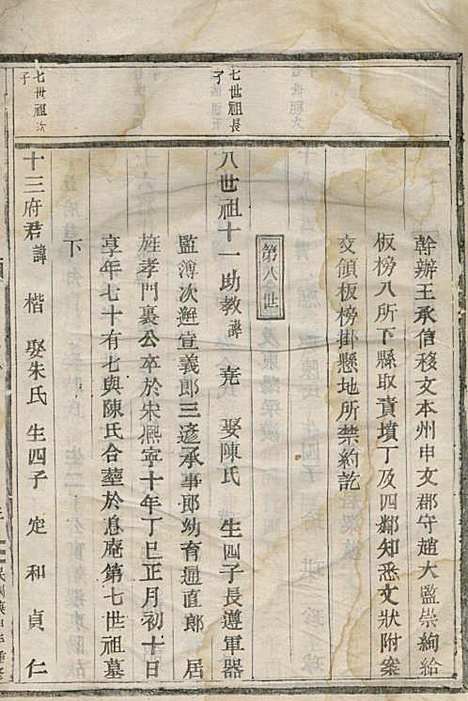 幹辦王承信移文本州申文郡守趙大監崇絢給
板榜八所下縣取責墳丁及四鄰知悉文狀附案
交領板榜掛懸地所禁約訖
第八世
七世祖長
子
八世祖十一助教諱 堯 娶陳氏 生四子長遵軍器
監簿次邂宣義郎三遊承事郎幼育通直郎 居
旌孝門裏公卒於宋熙寧十年丁巳正月初十日
享年七十有七與陳氏合塟於息庵第七世祖墓
下
七世祖次
子
十三府君諱 楷 娶朱氏 生四子 定 和 貞 仁